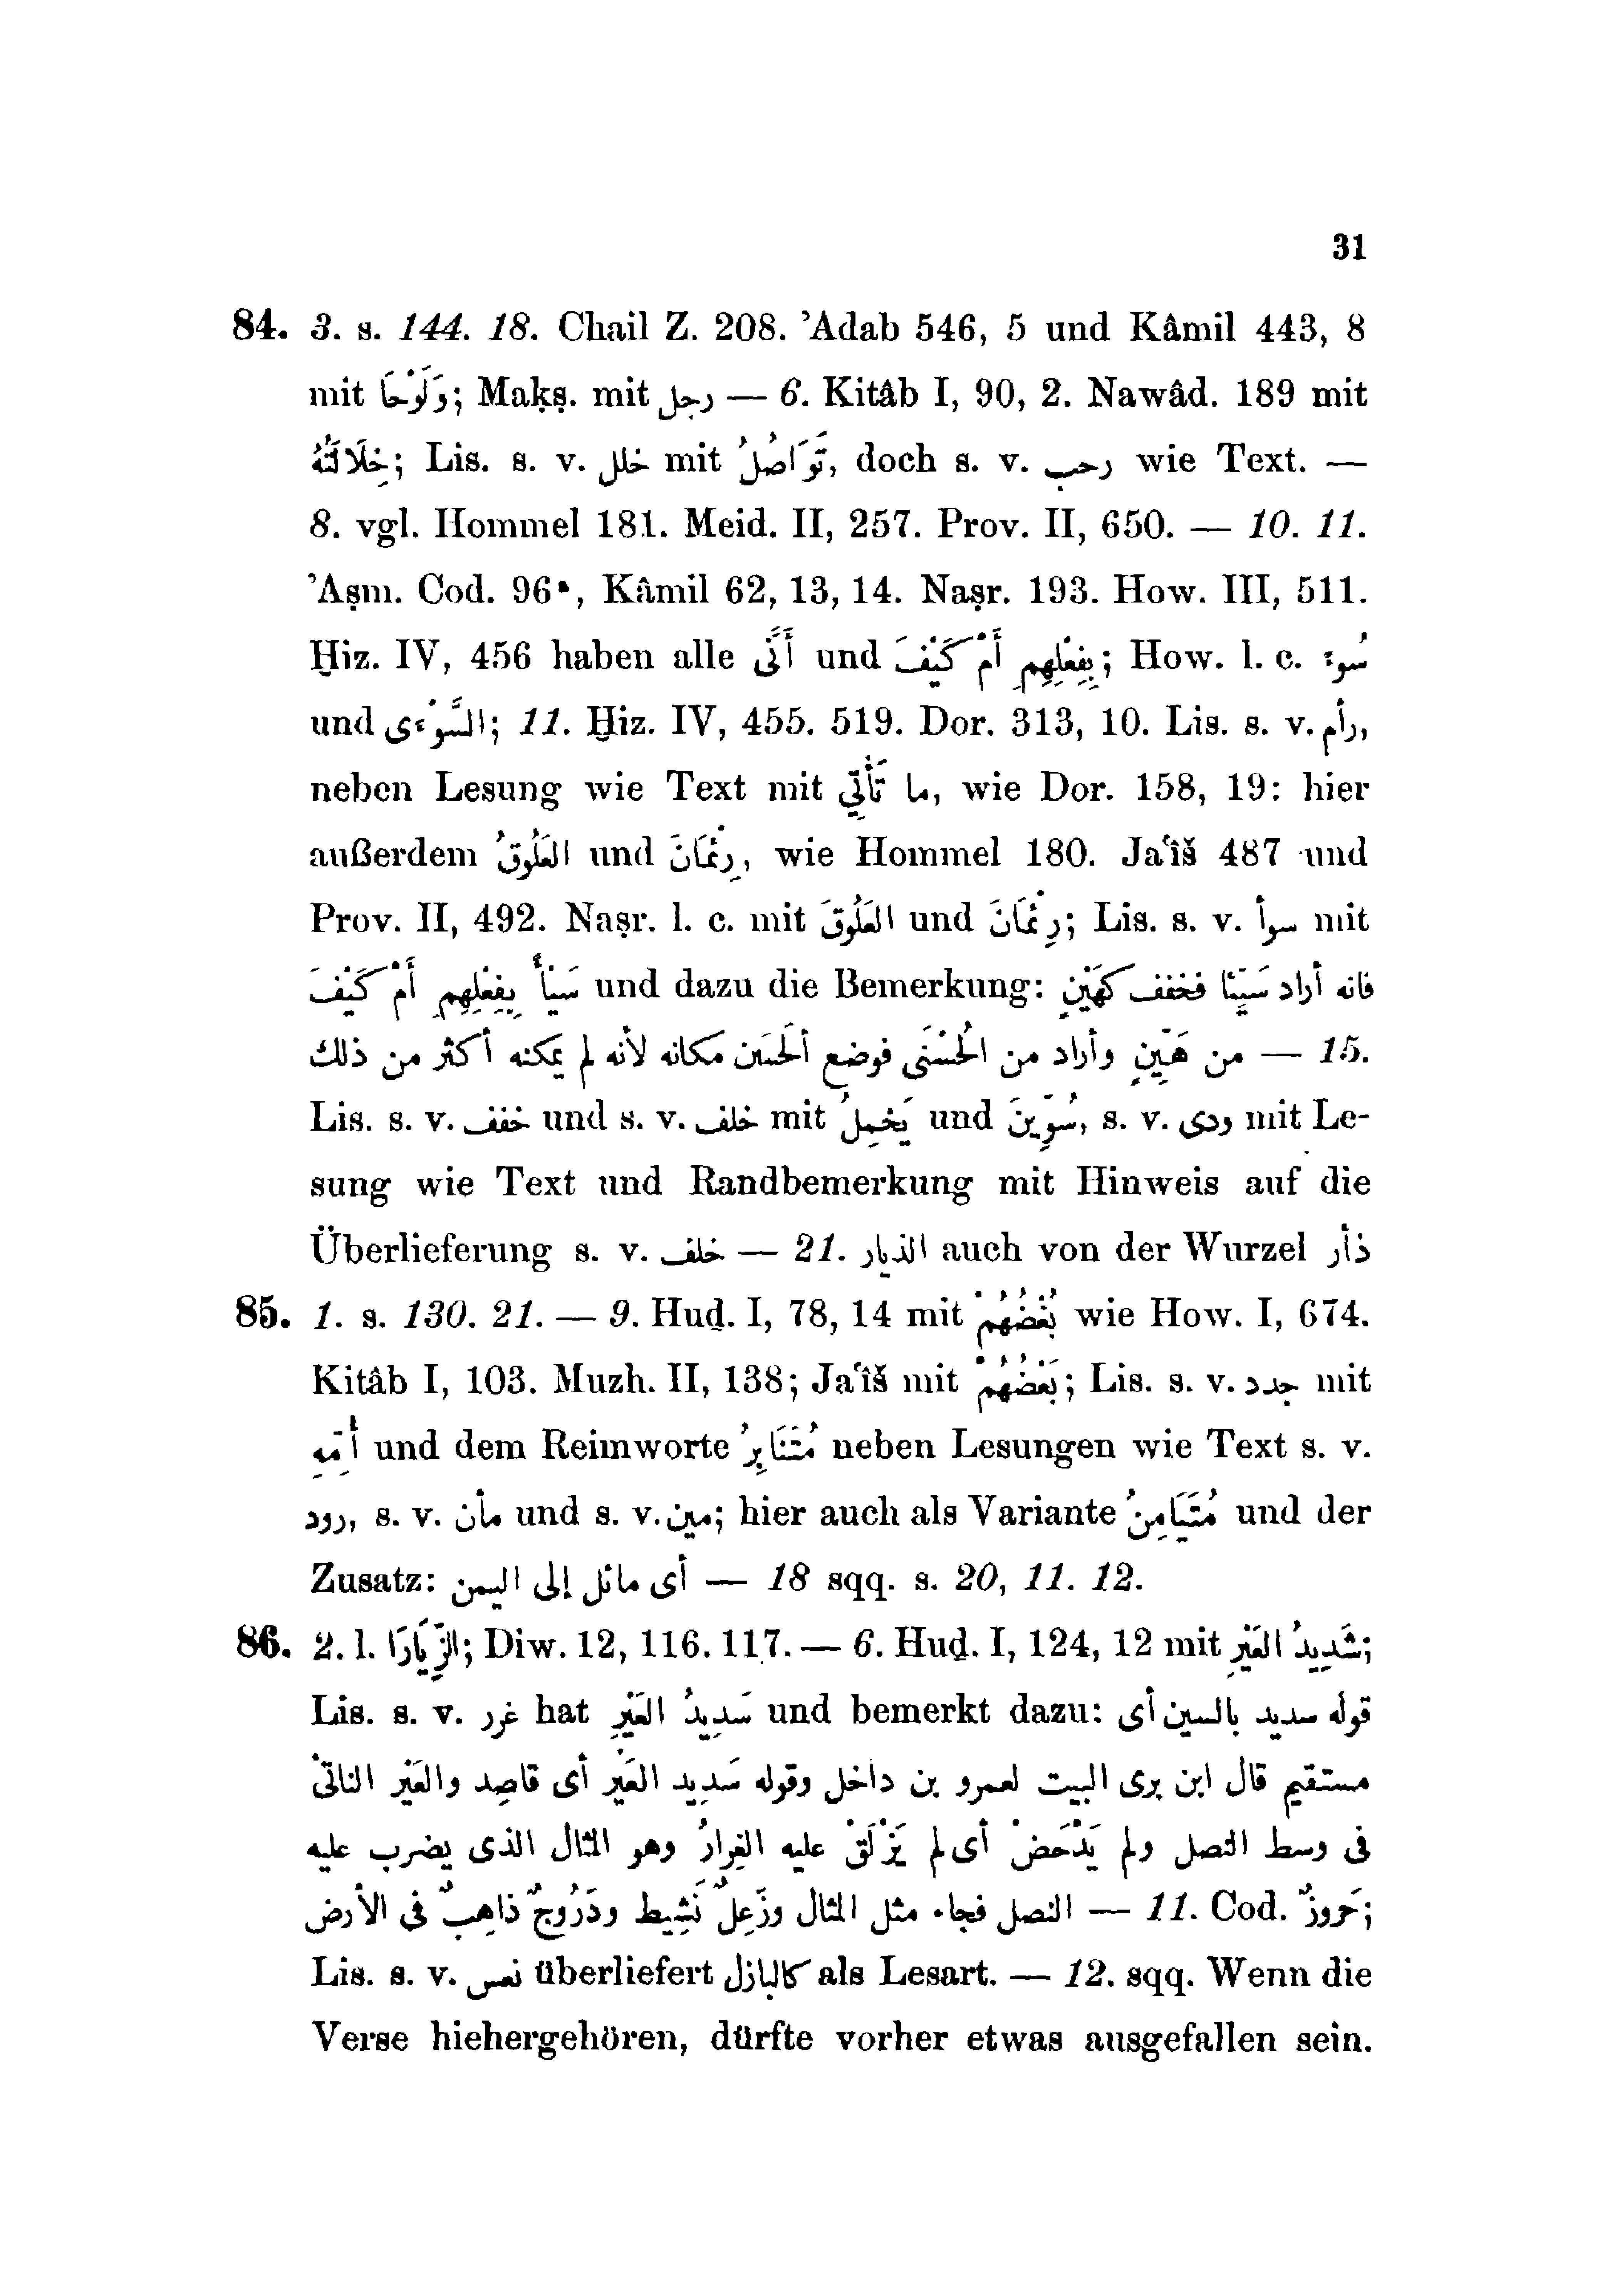 31
84. 3. s. 144. 18. Chail Z. 208. ʾAdab 546, 5 und Kâmil 443, 8
mit وَلَوْحَا; Maḳṣ. mit رجل — 6. Kitâb I, 90, 2. Nawâd. 189 mit
خِلَالَتُهُ; Lis. s. v. خلل mit تَوَاصُلُ, doch s. v. رحب wie Text. —
8. vgl. Hommel 181. Meid. II, 257. Prov. II, 650. — 10. 11.
ʾAṣm. Cod. 96ᵃ, Kâmil 62, 13, 14. Naṣr. 193. How. III, 511.
Ḫiz. IV, 456 haben alle أَنَّى und بِفِعْلِهِمِ أَمْ كَيْفَ; How. l. c. سُوء
und السَّوْءَى; 11. Ḫiz. IV, 455. 519. Dor. 313, 10. Lis. s. v. رأم,
neben Lesung wie Text mit ما تَأْتِي, wie Dor. 158, 19: hier
außerdem العَلُوقُ und رِئْمَانَ, wie Hommel 180. Jaʿîš 487 und
Prov. II, 492. Naṣr. l. c. mit العَلُوقَ und رِئْمَانَ; Lis. s. v. سوأ mit
سَيْأً بِفِعْلِهِمِ أَمْ كَيْفَ und dazu die Bemerkung: فانه أراد سَيِّئًا فخفف كهَيْنٍ
من هَيِّنٍ وأراد من الحُسْنَى فوضع الحَسَن مكانه لأنه لم يمكنه أكثر من ذلك — 15.
Lis. s. v. خفف und s. v. خلف mit يَحْمِلُ und سُوِّينَ, s. v. ودى mit Le-
sung wie Text und Randbemerkung mit Hinweis auf die
Überlieferung s. v. خلف — 21. الذيار auch von der Wurzel ذأر
85. 1. s. 130. 21. — 9. Huḏ. I, 78, 14 mit بُغْضُهُمْ wie How. I, 674.
Kitâb I, 103. Muzh. II, 138; Jaʿîš mit بَعْضُهُمْ; Lis. s. v. جدد mit
أُمِّهِ und dem Reimworte مُتَنَابِرُ neben Lesungen wie Text s. v.
رود, s. v. مأن und s. v. مين; hier auch als Variante مُتَيَامِنُ und der
Zusatz: أى مائل إلى اليمن — 18 sqq. s. 20, 11. 12.
86. 2. l. الزِّيَارَا; Diw. 12, 116. 117. — 6. Huḏ. I, 124, 12 mit شَدِيدُ العَيْرِ;
Lis. s. v. غرر hat سَدِيدُ العَيْرِ und bemerkt dazu: قوله سديد بالسين أى
مستقيم قال ابن برى البيت لعمرو بن داخل وقوله سَدِيد العَيْر أى قاصِد والعَيْر الناتئ
فى وسط النصل ولم يَدْحَضْ أى لم يَزْلَقْ عليه الغِرارُ وهو المثال الذى يضرب عليه
النصل فجاء مثل المثال وزَعِلٌ نَشِيط ودَرُوجٌ ذاهِبٌ فى الأرض — 11. Cod. حَزوزٌ;
Lis. s. v. نعس überliefert كالبازل als Lesart. — 12. sqq. Wenn die
Verse hiehergehören, dürfte vorher etwas ausgefallen sein.